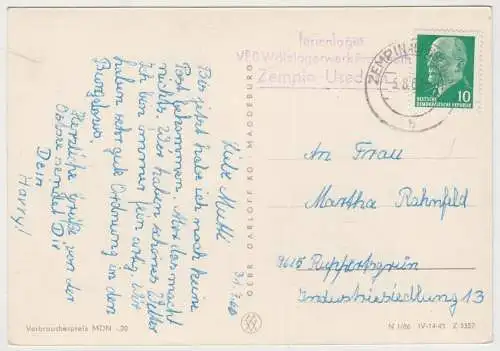 Ferienlager
VEB Wälzlagerwerk
Zempin Used
ZEMPIN
10
DEUTSCHE
DEMOKRATISCHE REPUBLIK
b
Liebe Mutti
Bis jetzt habe ich noch keine
Post bekommen. Aber das macht
nichts. Wir haben schönes Wetter
Ich bin immer schön artig. Wir
haben sehr gute Ordnung in den
Bunglows.
Herzliche Grüße von der
Ostsee sendet Dir
Dein
Harry!
GEBR. GARLOFF KG · MAGDEBURG
An Frau
Martha Rahnfeld
9615 Ruppertsgrün
Industriesiedlung 13
Verbraucherpreis MDN -.20
N 1/66 IV-14-45 Z 3357